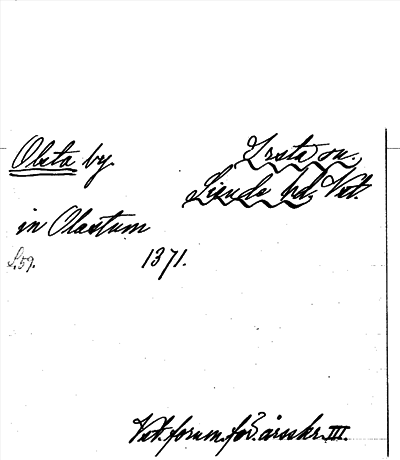 Olsta by.
Irsta sn.
Siende hd, Vst.
in Olastum
S.59.
1371.
Vst. fornm.för. årsskr. III.